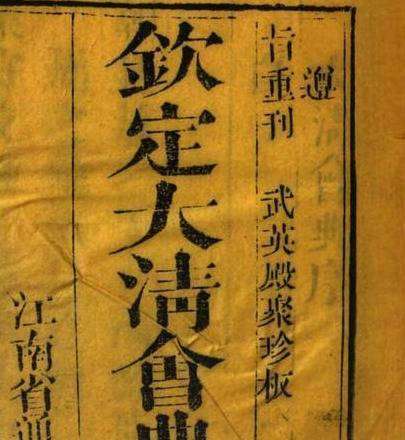 遵
旨重刊 武英殿聚珍板
欽定大清會典
江南省通